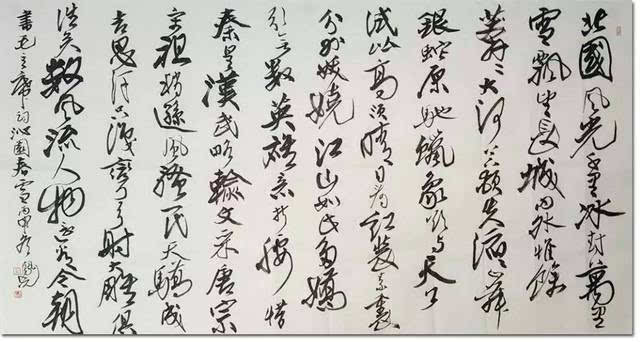 北國風光千里冰封萬里
雪飄望長城內外惟餘
莽莽大河上下頓失滔滔山舞
銀蛇原馳蠟象欲與天公
試比高須晴日看紅裝素裹
分外妖嬈江山如此多嬌
引無數英雄競折腰惜
秦皇漢武略輸文采唐宗
宋祖稍遜風騷一代天驕成
吉思汗只識彎弓射大雕俱
往矣數風流人物還看今朝
書毛主席詞沁園春雪丙申冬